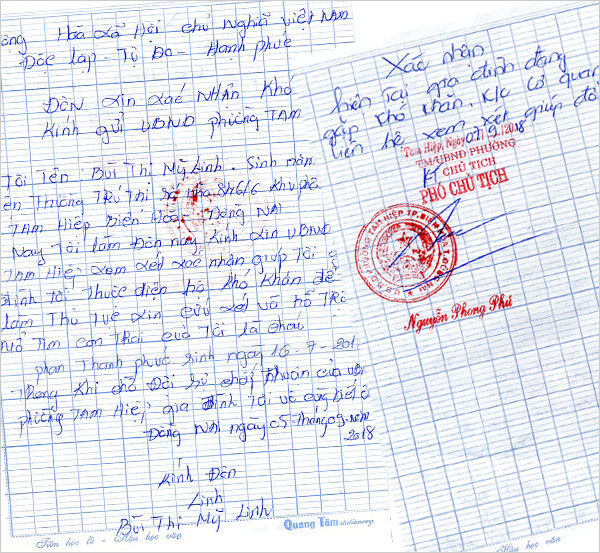 Hoà Xả Hội chủ Nghĩa việt NAM
Độc lập - Tự Do - Hạnh phúc
ĐƠN xin xác NHẬN Khó
Kính gửi UBND phường TAM
Tôi Tên: Bùi Thị Mỹ Linh. Sinh năm
Thường TRú Tại số nhà 846/6 Khu phố
TAM Hiệp Biên Hoà - Đồng NAI
Nay Tôi làm Đơn này Kính xin UBND
TAM Hiệp xem xét xác nhận giúp Tôi
đình tôi Thuộc diện hộ khó khăn để
làm Thủ Tục xin cứu xét và hỗ TRợ
mổ Tim con TRai của Tôi là cháu
phan Thanh phúc sinh ngày 16-7-201
Trong Khi chờ Đợi sự chấp Thuận của
phường TAM Hiệp gia Đình Tôi vô cùng biết ơ
Đồng NAI ngày 05 Tháng 09 năm
2018
Kính Đơn
Linh
Bùi Thị Mỹ Linh
Quang Tâm stationery
Tiên học lễ - Hậu học văn
Xác nhận
hiện Tại gia đình đang
gặp khó khăn, K/c cơ quan
liên hệ xem xét giúp đỡ
Tam Hiệp, Ngày 07/9/2018
TM/UBND PHƯỜNG
KT CHỦ TỊCH
PHÓ CHỦ TỊCH
Nguyễn Phong Phú
Hậu học văn